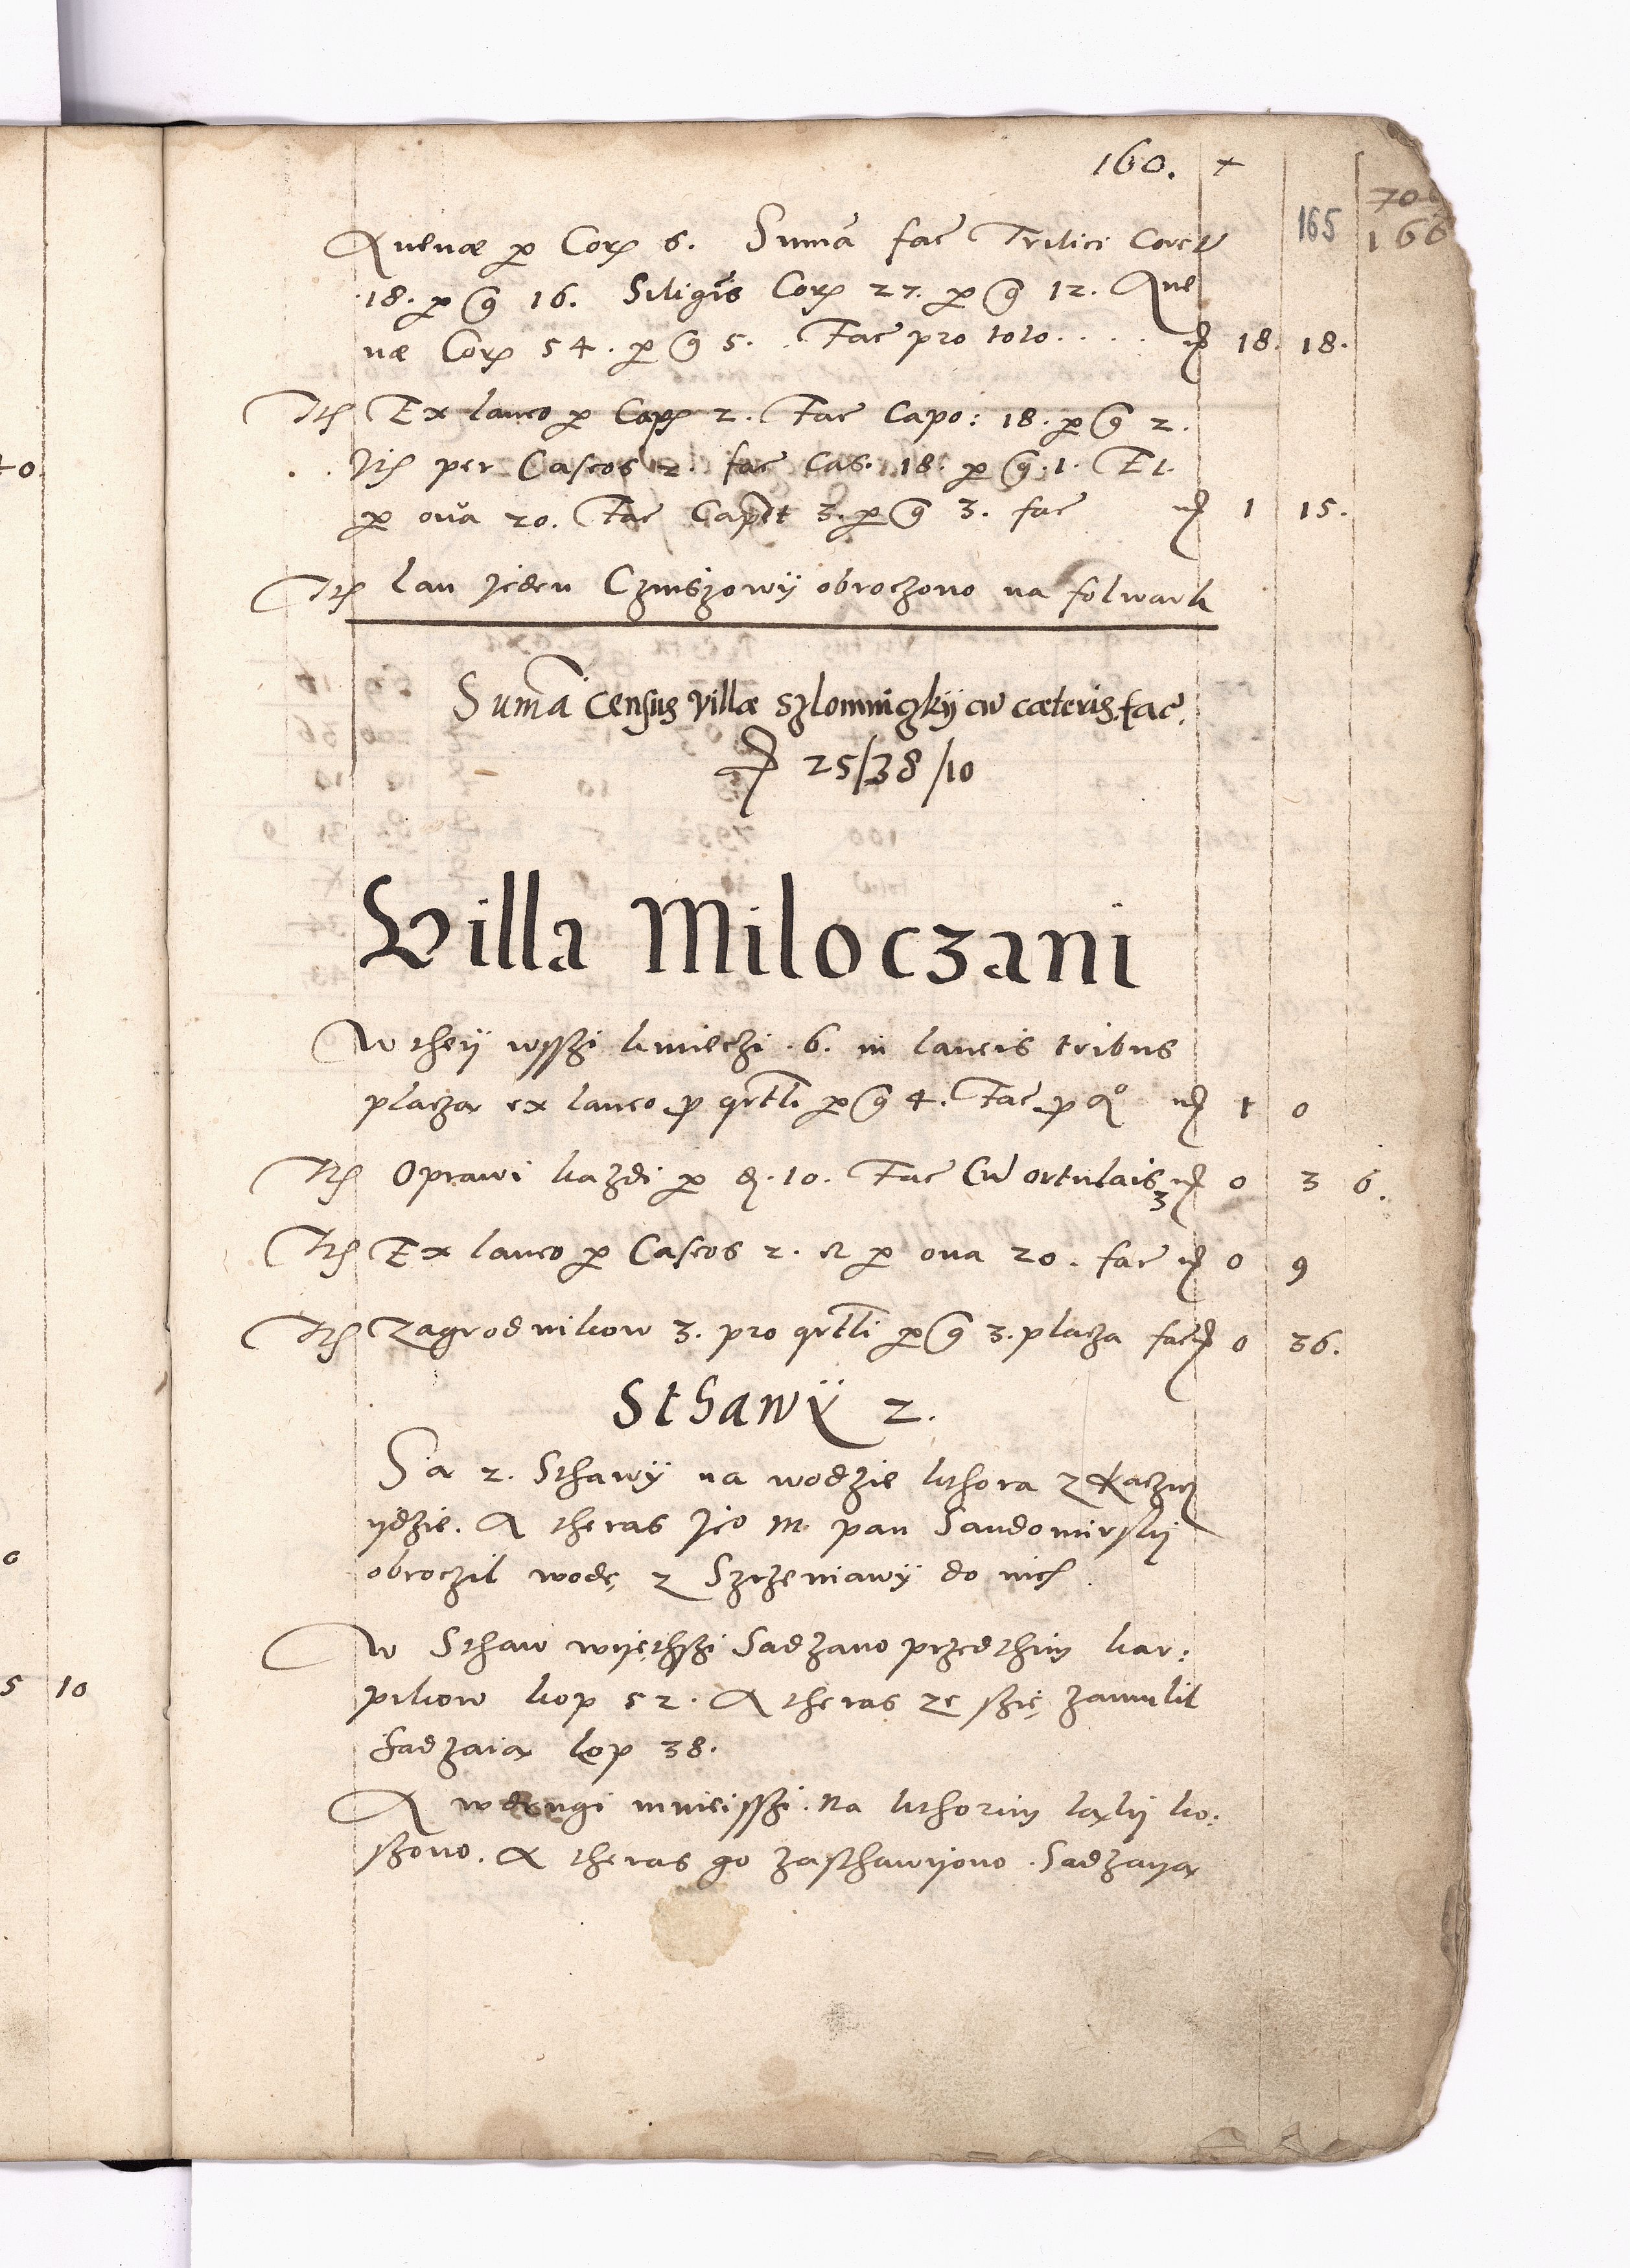 160. +
165
166
Avenæ p Cor 6. Suma fac Tritici Coret
18. p g 16. Siliginis Cor 27. p g 12. Ave
næ Cor 54. p g 5. Fac pro toto . . . . 18. 18.
Ite Ex laneo p Cap 2. Fac Capo: 18. p g 2.
Ite per Caseos 2. fac Cas. 18. p g. 1. Et
p ova 20. Fac Capet 3. p g 3. fac 1 15.
Ite lan Jeden Czinszowÿ obroczono na folwark
Suma Census villæ Szlomniczkÿ cu cæteris fac.
25/38/10
Villa Miloczani
W theÿ wsszi kmieczi . 6. in laneis tribus
placza ex laneo p qrtli p g 4. Fac p Ao 1 0
Ite Oprawi kazdi p d. 10. Fac Cu ortulais 3 0 3 6.
Ite Ex laneo p Caseos 2. et p ova 20. fac 0 9
Ite Zagrodnikow 3. pro qrtli p g 3. placza fac 0 36.
Sthawÿ 2.
Sa 2. Sthawÿ na wodzie kthora z Racziei
ÿdzie. A theras Jeo M pan Sandomirskÿ
obroczil wodę z Szrzeniawÿ do nich
W Sthaw wÿęthszi Sadzano przedthim kar:
pikow kop 52. A theras ze szię zamulil
sadzaia kop 38.
A w drugi mnieisszi. Na kthorim lakÿ ko:
szono. A theras go zasthawÿono. Sadzaÿa
40.
0
5 10